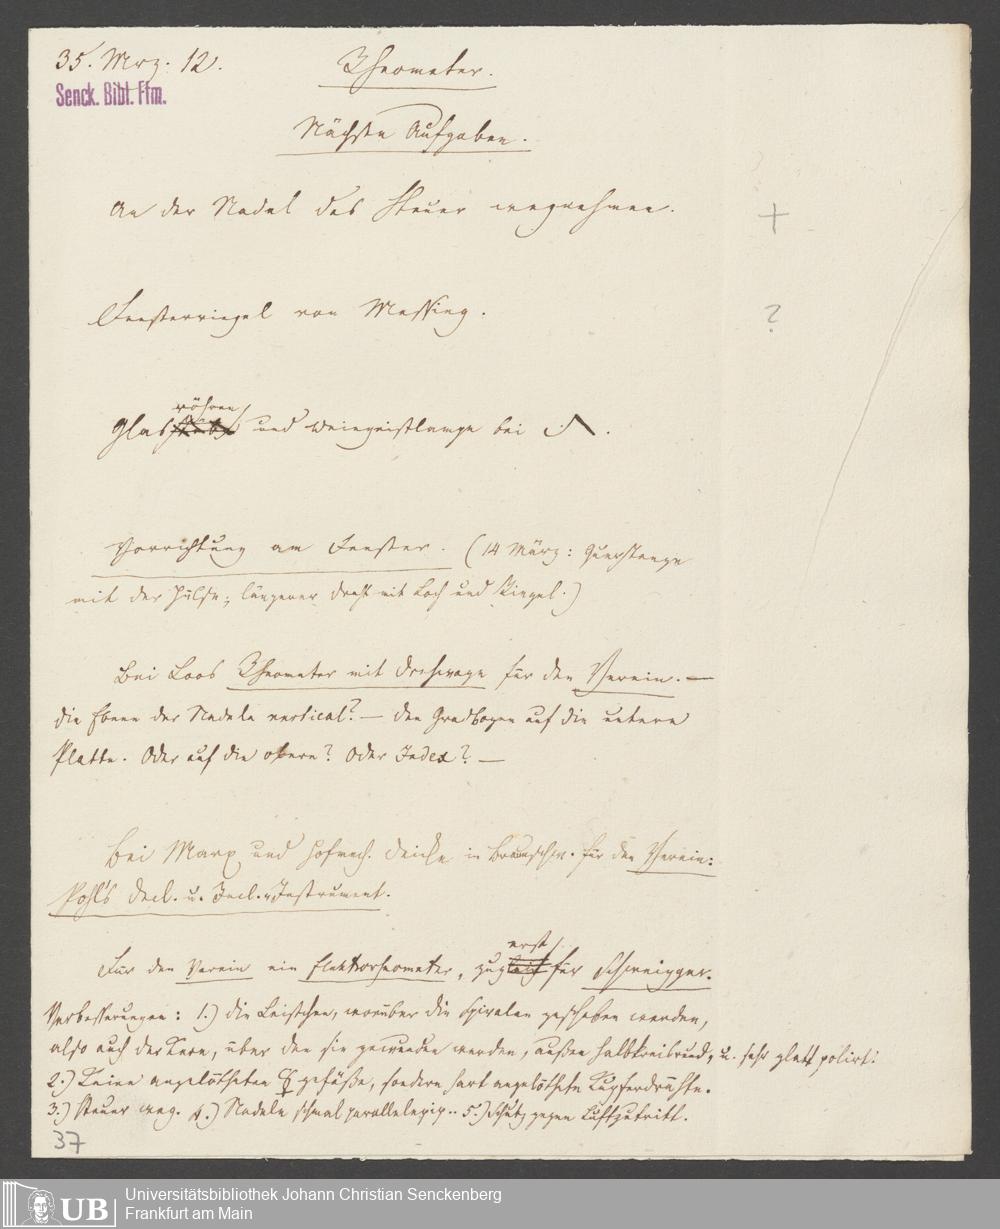 35. Mrz. 12.
Senck. Bibl. Ffm.
Rheometer.
Nächste Aufgaben.
An der Nadel das Steuer wegnehmen.
+
Fensterriegel von Messing.
?
röhren
Glas und Weingeistlampe bei
Vorrichtung am Fenster. (14 März: Querstange
mit der Hülse; längerer Draht mit Loch und Ringel.)
Bei Loos Rheometer mit Drehwage für den Verein. —
die Ebene der Nadeln vertical? — den Gradbogen auf die untere
Platte. Oder auf die obere? Oder Index? —
Bei Marx und Hofmech. Deicke in Braunschw. für den Verein:
Pohl's Decl. u. Incl.-Instrument.
erst
Für den Verein ein Elektrorheometer, für Schweigger.
Verbesserungen: 1.) die Leistchen, worüber die Spiralen geschoben werden,
also auch der Kern, über den sie gewunden werden, außen halbkreisrund, u. sehr glatt polirt.
2.) Keine angelötheten ☿ gefäße, sondern hart angelöthete Kupferdrähte.
3.) Steuer weg. 4.) Nadeln schmal parallelepip.. 5.) Schutz gegen Luftzutritt.
37
UB
Universitätsbibliothek Johann Christian Senckenberg
Frankfurt am Main